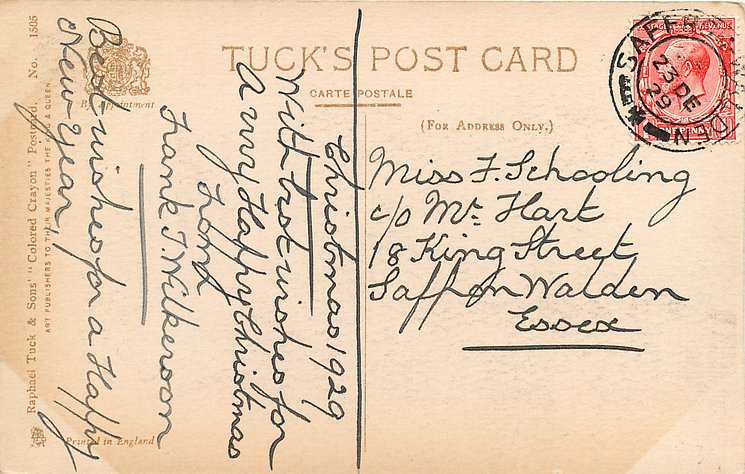 TUCK'S POST CARD
CARTE POSTALE
(FOR ADDRESS ONLY.)
By Appointment
Raphael Tuck & Sons' "Colored Crayon" Postcard. No. 1505
ART PUBLISHERS TO THEIR MAJESTIES THE KING & QUEEN.
Printed in England
SAFFRON WALDEN
23 DE
29
POSTAGE REVENUE
ONE PENNY
Miss F. Schooling
c/o Mr. Hart
18 King Street
Saffron Walden
Essex
Christmas 1929
With best wishes for
A very Happy Christmas
From
Frank J. Wilkerson
Best wishes for a Happy
New Year